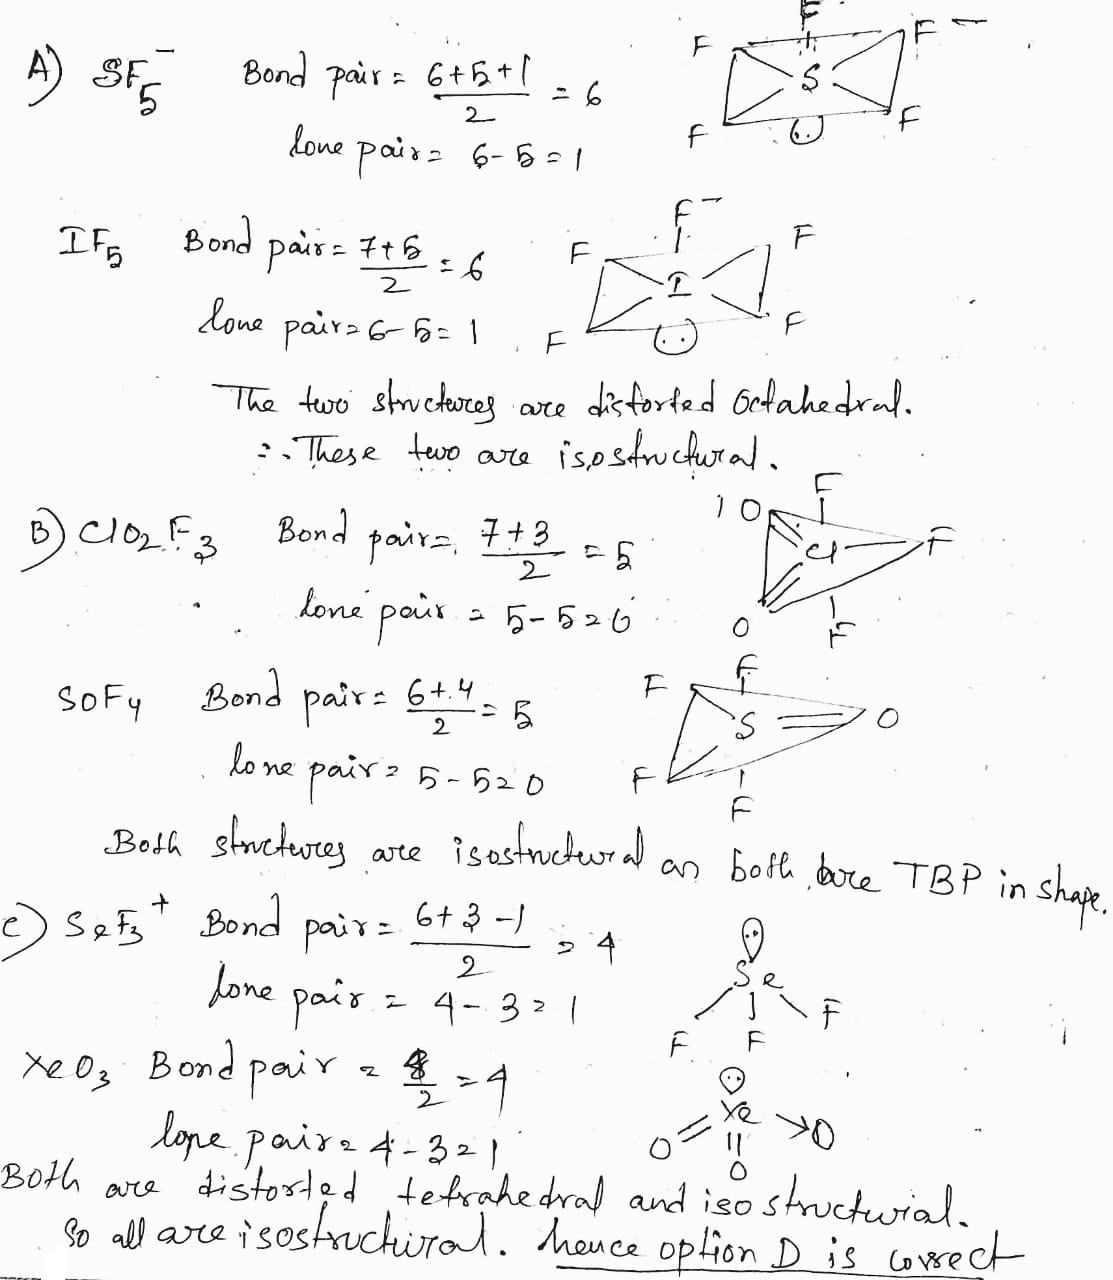 A) SF5⁻ Bond pair = (6+5+1)/2 = 6
lone pair = 6-5=1
F F F⁻
S
F F
IF5 Bond pair = (7+5)/2 = 6
lone pair = 6-5=1
F⁻
F F
I
F F
The two structures are distorted Octahedral.
∴ These two are isostructural.
B) ClO2F3 Bond pair = (7+3)/2 = 5
lone pair = 5-5=0
O F
Cl F
O F
SOF4 Bond pair = (6+4)/2 = 5
lone pair = 5-5=0
F F
S O
F F
Both structures are isostructural as both are TBP in shape.
C) SeF3⁺ Bond pair = (6+3-1)/2 = 4
lone pair = 4-3=1
Se
F F F
XeO3 Bond pair = 8/2 = 4
lone pair = 4-3=1
Xe
O O O
Both are distorted tetrahedral and isostructurial.
So all are isostructural. hence option D is correct